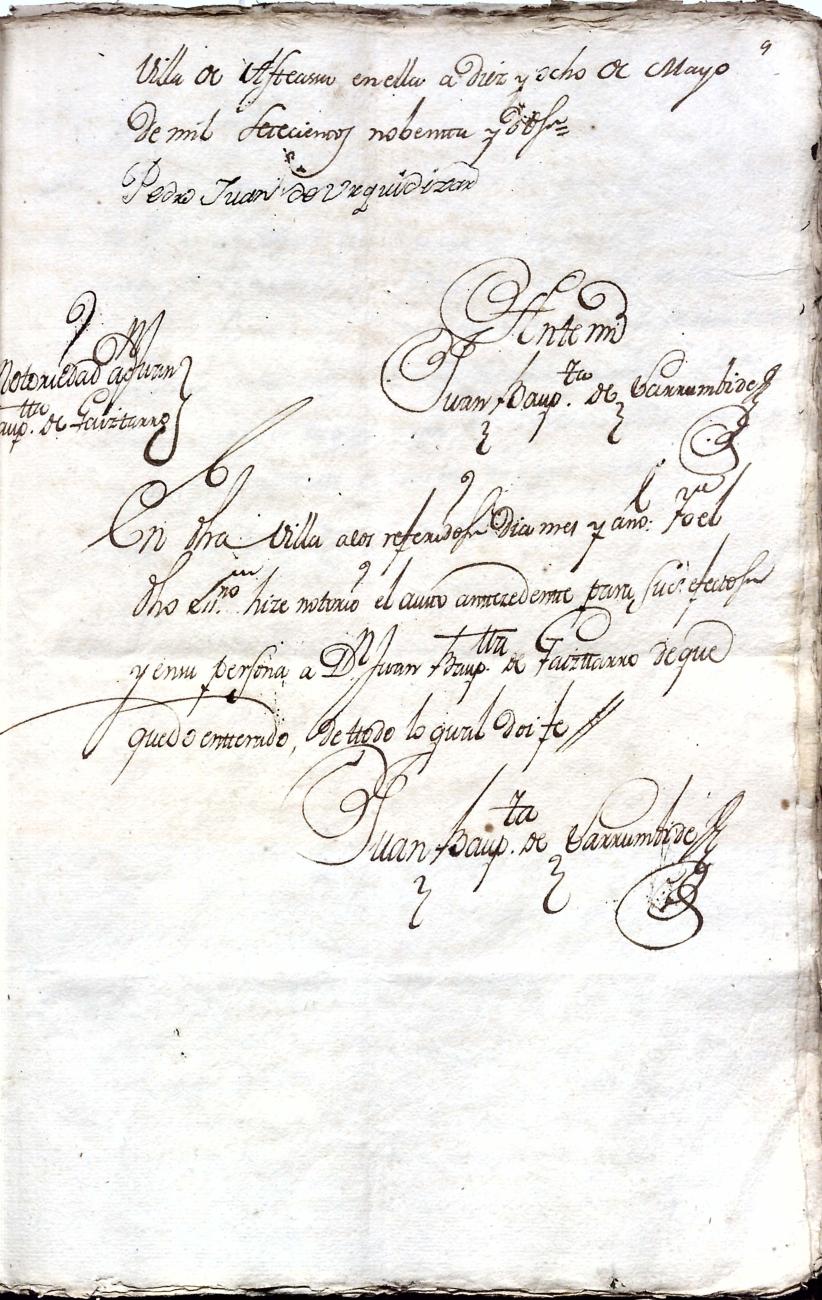 9
Villa de Asteasu en ella a diez y ocho de Mayo
de mil setecientos nobentta y dos =
Pedro Juan de Urquidizar
Ante mi
Juan Baup.ta de Larrumbide
Nottoriedad a Dn Juan
Baup.tta de Gaiztarro
En dha Villa a los referidos dia mes y año: Yo el
dho essno hize notorio el autto anttezedentte para sus efectos
y en su persona a Dn Juan Baup.tta de Gaizttarro de que
quedo entterado, de ttodo lo qual doi fe //
Juan Baup.ta de Larrumbide